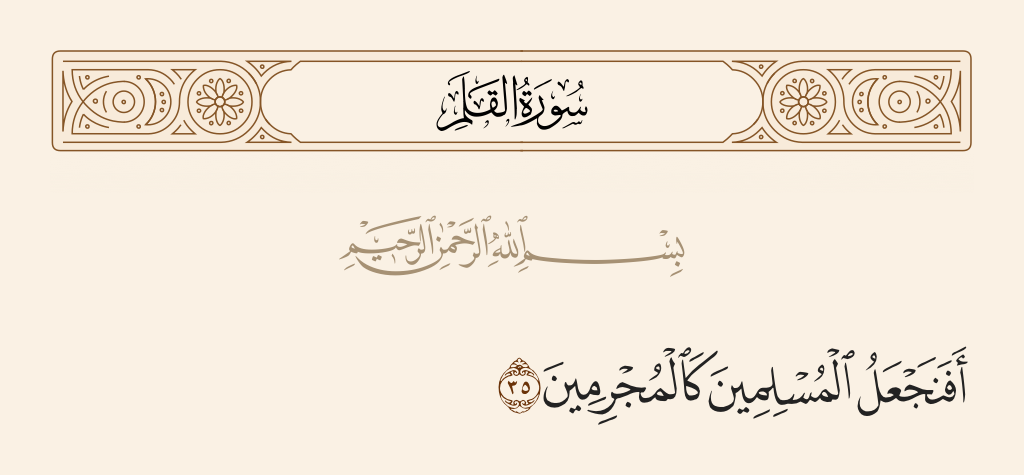 سُورَةُ القَلَمِ
بِسْمِ ٱللَّهِ ٱلرَّحْمَٰنِ ٱلرَّحِيمِ
أَفَنَجْعَلُ ٱلْمُسْلِمِينَ كَٱلْمُجْرِمِينَ ٣٥